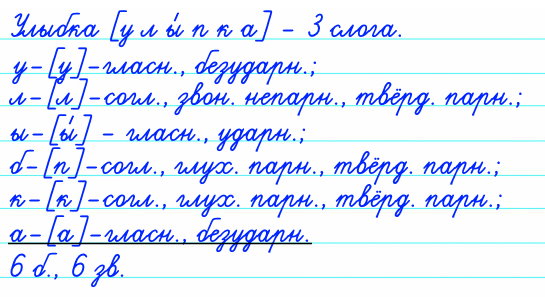 Улыбка [у л ы́ п к а] – 3 слога.
у–[у]–гласн., безударн.;
л–[л]–согл., звон. непарн., твёрд. парн.;
ы–[ы́] – гласн., ударн.;
б–[п]–согл., глух. парн., твёрд. парн.;
к–[к]–согл., глух. парн., твёрд. парн.;
а–[а]–гласн., безударн.
6 б., 6 зв.